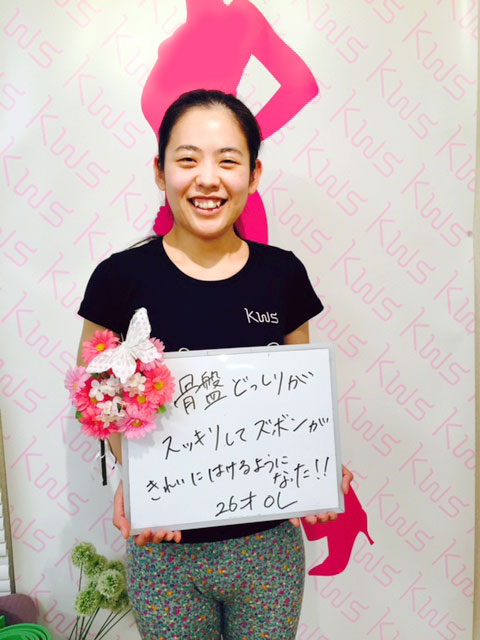 KWS
骨盤どっしりが
スッキリしてズボンが
きれいにはけるように
なった!!
26才OL